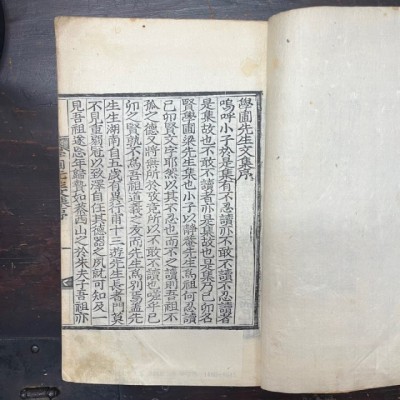 學圃先生文集序
嗚呼小子於是集有不忍讀亦不敢不讀不忍讀者
是集故也不敢不讀者亦是集故也是集乃己卯名
賢學圃梁先生集也小子以靜庵先生爲祖何忍讀
己卯賢文字耶然以其不忍也而不之讀則吾祖不
孤之德又將無所於攷焉所以不敢不讀也嗟乎己
卯之賢孰不爲吾祖道義之友而先生爲別焉盖先
生生湖南自五歲有異
十三遊先生長者門莫
不見重弱冠以致澤自任其德器之夙就可知及一
見吾祖遂忘年
如蔡西山之於朱夫子吾祖亦